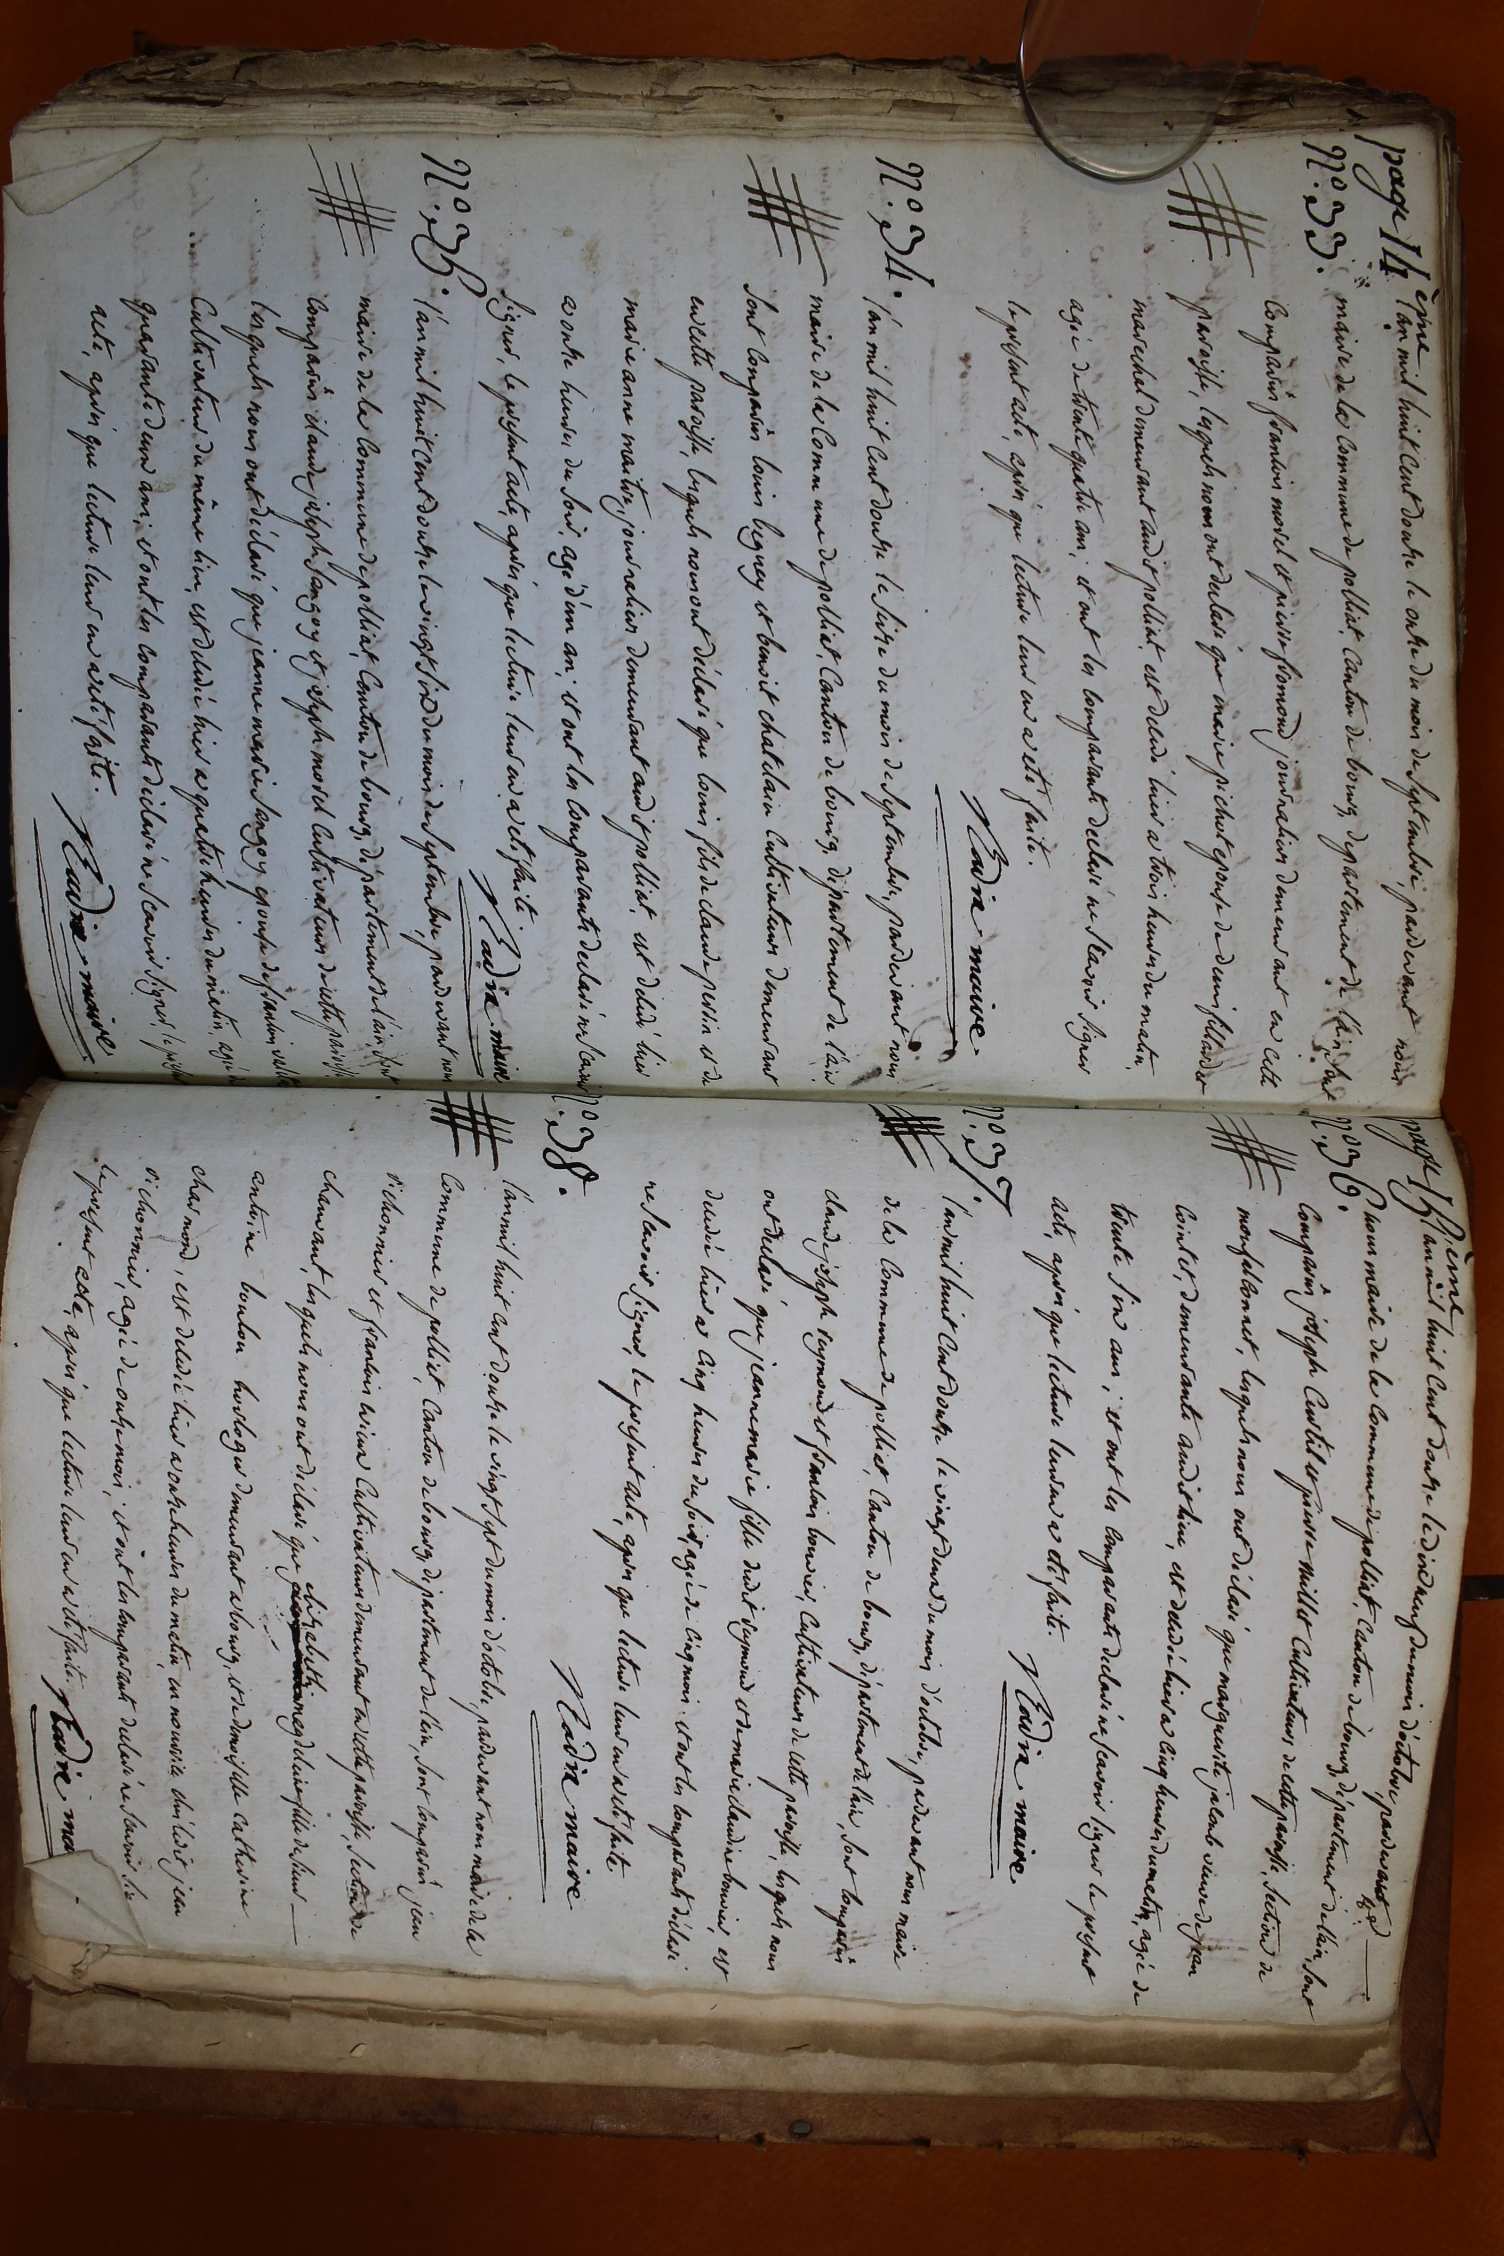 page 14ème
N.º 33.
l'an mil huit cent douze le onze du mois de septembre, pardevant nous
maire de la commune de polliat, canton de bourg, departement de l'ain, sont
comparûs françois morel et pierre fromond journaliers demeurant en cette
paroisse, lesquels nous ont declaré que marie pichot epouse de denis
marechal demeurant audit polliat est decedé hier a trois heures du matin,
agée de trente quatre ans; et ont les comparants declaré ne scavoir signer
le present acte, après que lecture leur en a eté faite.
maire
N.º 34.
l'an mil huit cent douze le seize du mois de septembre, pardevant nous
maire de la commune de polliat, canton de bourg, departement de l'ain
sont comparûs louis et benoit chatelain cultivateurs demeurant
en cette paroisse, lesquels nous ont déclaré que louis fils de claude perrin et de
marie anne journalier demeurant audit polliat, est decedé hier
a onze heures du soir, agé d'un an; et ont les comparants declaré ne scavoir
signer, le present acte, après que lecture leur en a eté faite
maire
N.º 35.
l'an mil huit cent douze le vingt six du mois de septembre, pardevant nous
maire de la commune de polliat, canton de bourg, département de l'ain sont
comparûs claude joseph et joseph morel cultivateurs de cette paroisse
lesquels nous ont déclaré que jeanne marie epouse de
cultivateur du même lieu, est decedée hier a quatre heures du matin, agée de
quarante deux ans; et ont les comparants déclaré ne scavoir signer, le present
acte, après que lecture leur en a eté faite.
maire
page 15ème
N.º 36.
l'an mil huit cent douze le dix neuf du mois d'octobre, pardevant
nous maire de la commune de polliat, canton de bourg, département de l'ain, sont
comparûs joseph et pierre millet cultivateurs de cette paroisse, section de
lesquels nous ont déclaré que marguerite veuve de jean
demeurante audit lieu, est decedée hier a cinq heures du matin, agée de
trente six ans; et ont les comparants declaré ne scavoir signer le present
acte, après que lecture leur en a eté faite.
maire
N.º 37.
l'an mil huit cent douze le vingt deux du mois d'octobre, pardevant nous maire
de la commune de polliat, canton de bourg, département de l'ain, sont comparûs
claude joseph reymond et françois bouvier, cultivateurs de cette paroisse, lesquels nous
ont declaré que jeanne marie fille dudit reymond et de marie claudine bouvier, est
decedée hier a cinq heures du soir, agée de cinq mois; et ont les comparants déclaré
ne scavoir signer, le present acte, après que lecture leur en a eté faite
maire
N.º 38.
l'an mil huit cent douze le vingt sept du mois d'octobre, pardevant nous maire de la
commune de polliat, canton de bourg, département de l'ain, sont comparûs jean
pichonnier et françois cultivateurs demeurant en cette paroisse, section de
lesquels nous ont déclaré que elizabeth fille de sieur
antoine horloger demeurant a bourg, et de demoiselle catherine
charmond, est decedée hier a onze heures du matin, en nourrice chez ledit jean
pichonnier, agée de onze mois; et ont les comparants declaré ne scavoir
le present acte, après que lecture leur en a eté faite.